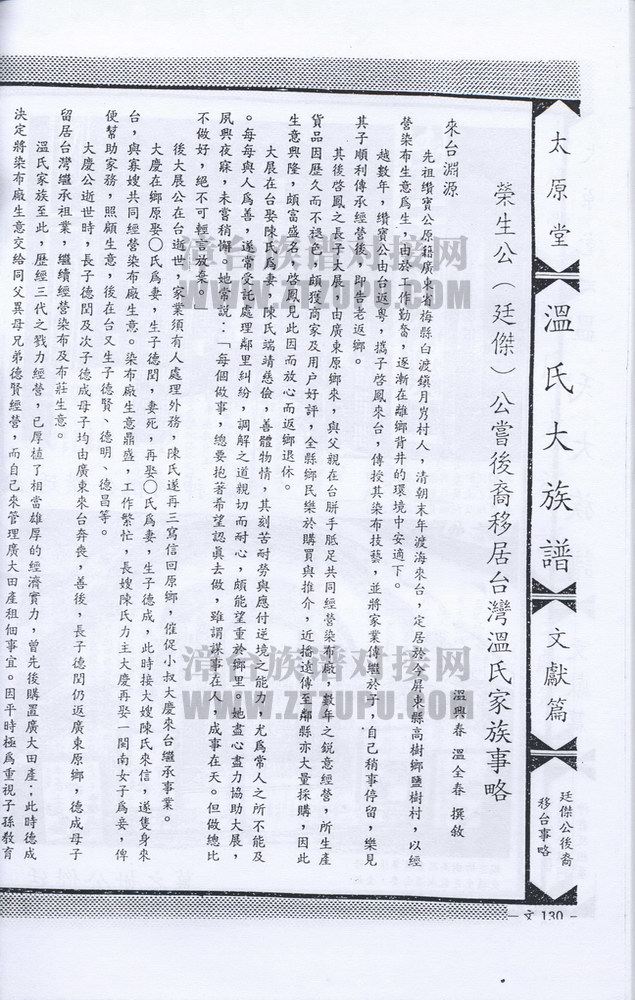 太原堂
溫氏大族譜
文獻篇
廷傑公後裔
移台事略
文 130
榮生公（廷傑）公嘗後裔移居台灣溫氏家族事略
溫興春 溫全春 撰敘
來台淵源
先祖纘寶公原籍廣東省梅縣白渡鎮月岃村人，清朝末年渡海來台，定居於今屏東縣高樹鄉鹽樹村，以經
營染布生意爲生，由於工作勤奮，逐漸在離鄉背井的環境中安適下。
越數年，纘寶公由台返粵，攜子啓鳳來台，傳授其染布技藝，並將家業傳繼於子，自己稍事停留，樂見
其子順利傳承經營後，即告老返鄉。
其後啓鳳之長子大展，由廣東原鄉來，與父親在台胼手胝足共同經營染布廠，數年之銳意經營，所生產
貨品因歷久而不褪色，頗獲商家及用户好評，全縣鄉民樂於購買與推介，近播遠傳至鄰縣亦大量採購，因此
生意興隆，頗富盛名，啓鳳見此因而放心而返鄉退休。
大展在台娶陳氏爲妻，陳氏端靖慈儉，善體物情，其刻苦耐勞與應付逆境之能力，尤爲常人之所不能及
。每每與人爲善，遂常受託處理鄰里糾紛，調解之道親切而耐心，頗能望重於鄉里。她盡心盡力協助大展，
夙興夜寐，未嘗稍懈。她常說：「每個做事，總要抱著希望認真去做，雖謂謀事在人，成事在天。但做總比
不做好，絕不可輕言放棄。」
後大展公在台逝世，家業須有人處理外務，陳氏遂再三寫信回原鄉，催促小叔大慶來台繼承事業。
大慶在鄉原娶〇氏爲妻，生子德閏，妻死，再娶〇氏爲妻，生子德成，此時接大嫂陳氏來信，遂隻身來
台，與寡嫂共同經營染布廠生意。染布廠生意鼎盛，工作繁忙，長嫂陳氏力主大慶再娶一閩南女子爲妾，俾
便幫助家務，照顧生意，後在台又生子德賢、德明、德昌等。
大慶公逝世時，長子德閏及次子德成母子均由廣東來台奔喪，善後，長子德閏仍返廣東原鄉，德成母子
留居台灣繼承祖業，繼續經營染布及布莊生意。
溫氏家族至此，歷經三代之戮力經營，已厚植了相當雄厚的經濟實力，曾先後購置廣大田產；此時德成
決定將染布廠生意交給同父異母兄弟德賢經營，而自己來管理廣大田產租佃事宜。因平時極爲重視子孫教育
漳台族谱对接网
WWW.ZTZUPU.COM
漳台族谱对接网
WWW.ZTZUPU.COM